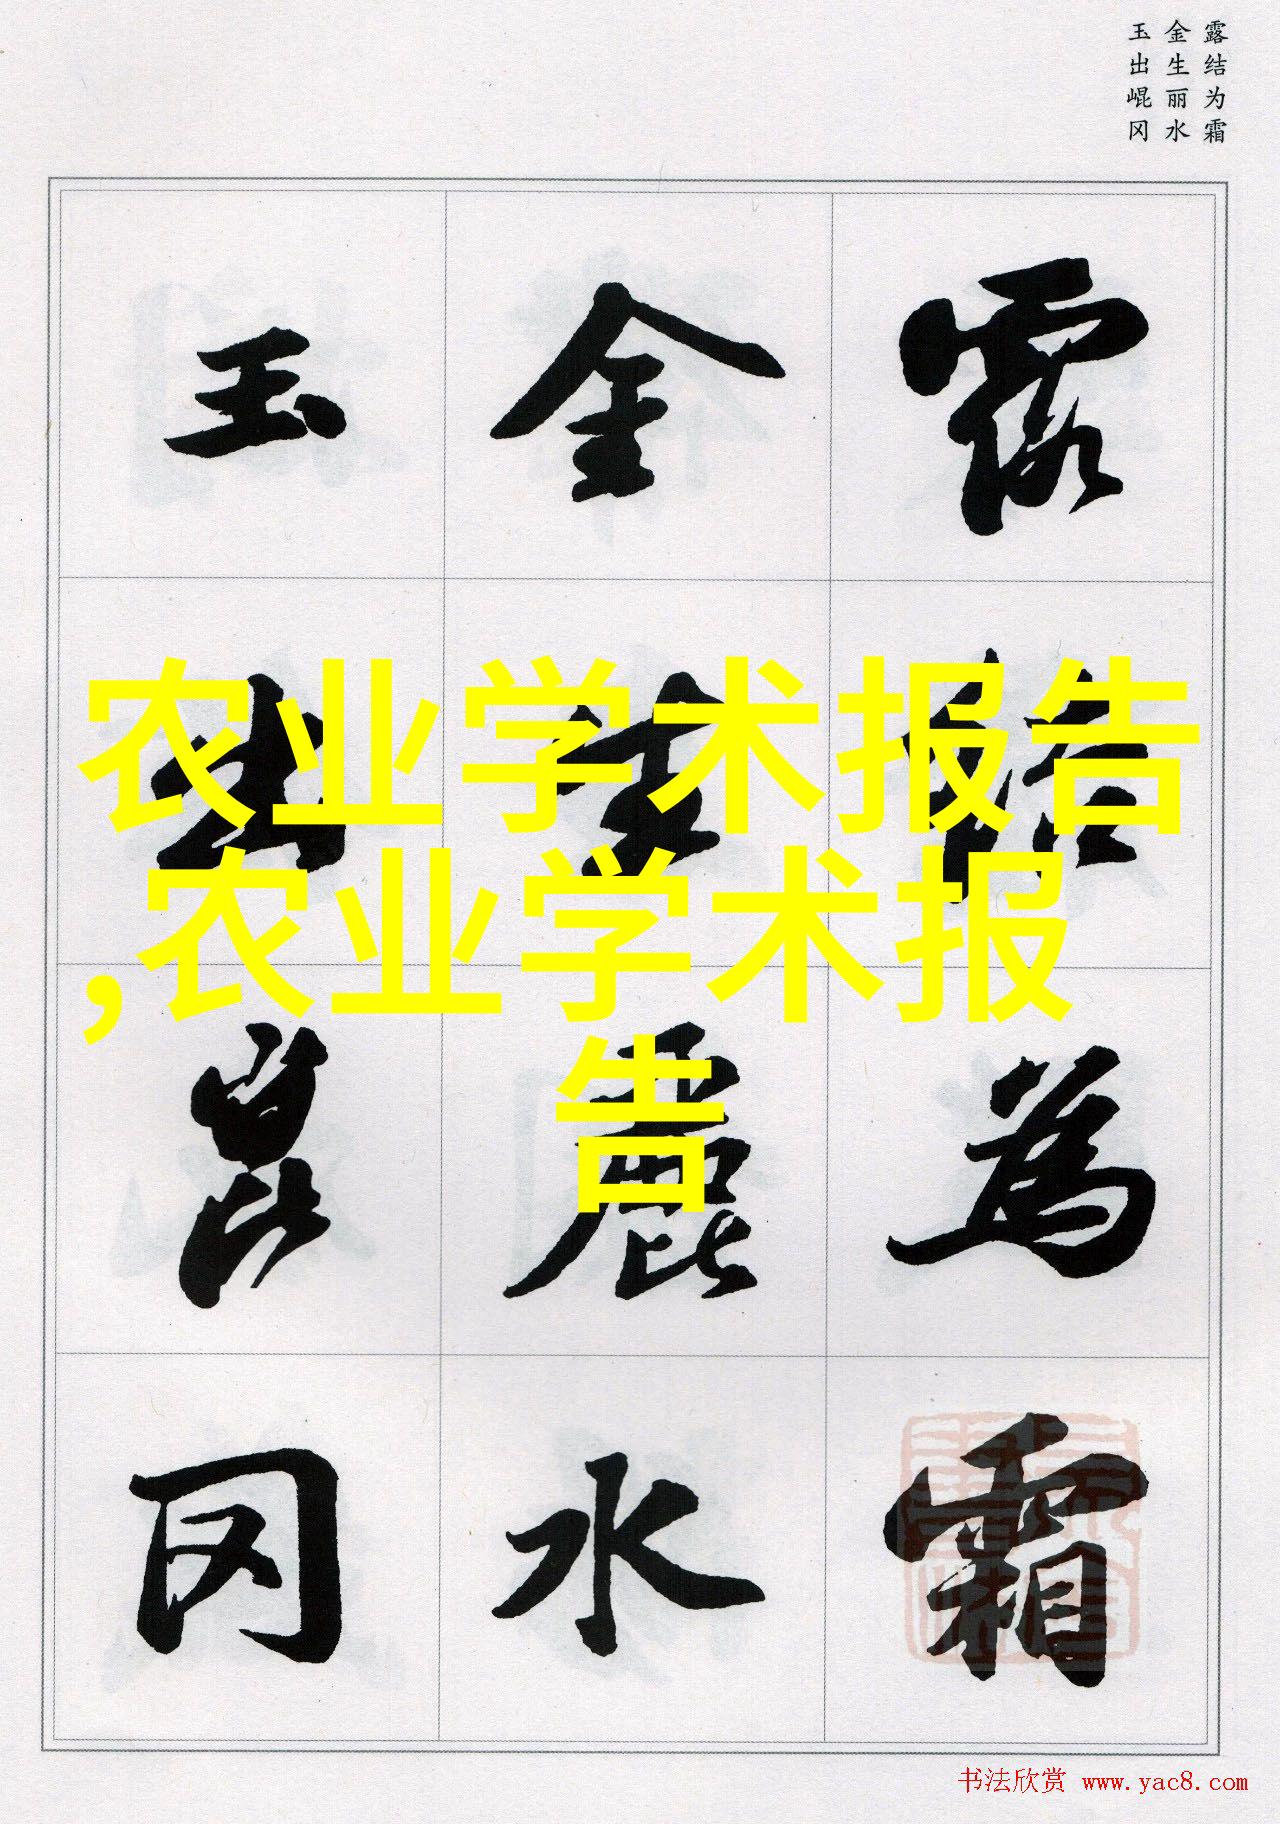 露结为霜
金生丽水
玉出崐冈
露结为霜
金生麗水
玉出崑冈
农业学术报告
,农业学术报
告
书法欣赏 www.yac8.com